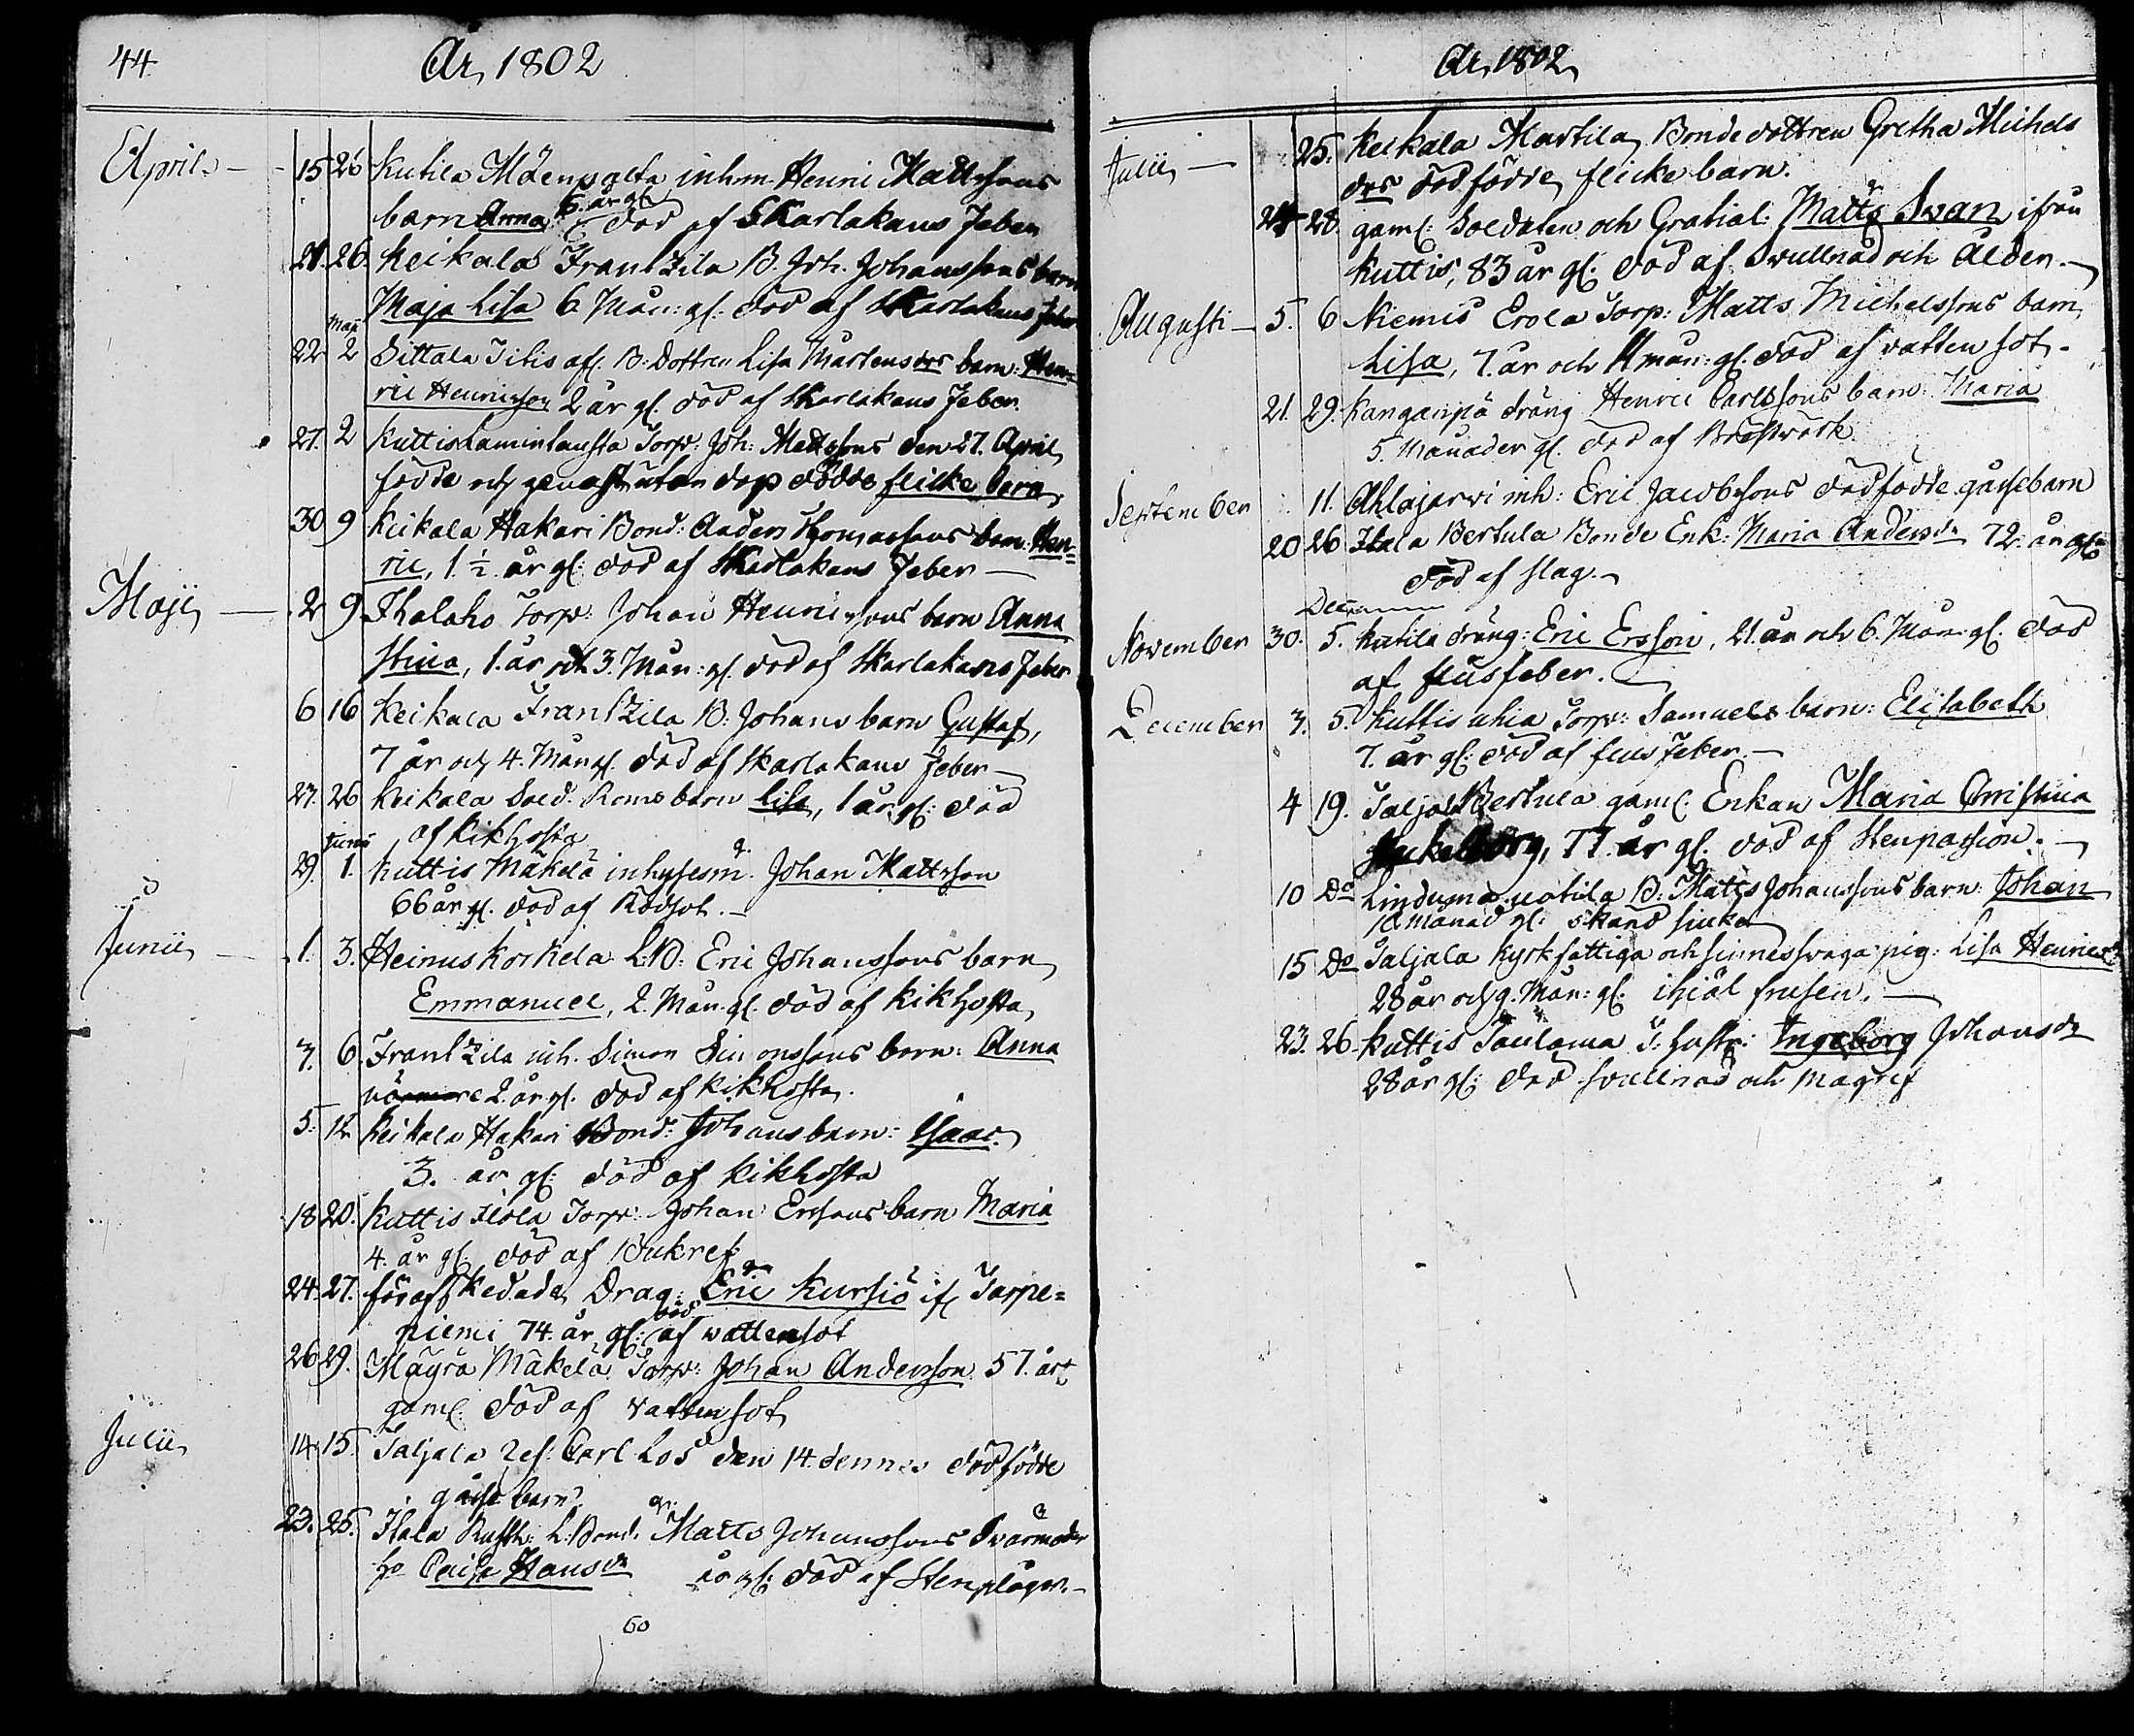 44
År 1802
April
15 26 Kutila Mäenpgeta inhm. Henric Mattssons
6 år gl:
barn Anna död af Skarlakans feber
21. 26. Keikala Frantzila B. Joh. Johanssons barn
Maja Lisa 6 Mån: gl. död af Skarlakans feber
Maji
22 2 Sittala Titis afl. B: Dottren Lisa Mårtensdrs barn: Hen=
ric Henricson 2 år gl. död af Skarlakans feber.
27. 2 Kuttis Torp: Joh: Mattssons den 27. April
födde och genast utan dop dödde flicke barn
30 9 Keikala Hakari Bond: Anders Thomassons barn: Hen=
ric, 1. ½ år gl: död af Skarlakans feber
Maji
2 9. Thalaho Torp: Johan Henricssons barn Anna
Stina, 1. år och 3. Mån: gl. död af Skarlakans feber
6 16 Keikala Frantzila B: Johans barn Gustaf,
7 år och 4. Mån gl. död af Skarlakans feber
27. 26 Keikala Sold. Roms barn Lisa, 1 år gl: död
af kikhosta
Junii
29. 1. Kuttis Mäkelä inhysesm. g. Johan Mattsson
66 år gl. död af Rödsot.
Junii
1. 3. Heinus Korkela L:B: Eric Johanssons barn
Emmanuel, 2. Mån. gl. död af kikhosta
3. 6. Frantzila inh. Simon Simonssons barn: Anna
2. år gl. död af kikhosta.
5. 12 Keikala Hakari Bond: Johans barn: Isaac
3. år gl: död af kikhosta
18 20. Kuttis Ilola Torp: Johan Erssons barn Maria
4. år gl. död af Bukref
24. 27. förafskedade Drag: Eric Kursiö if Sarpe=
niemi 74. år gl: död af wattensot
26 29. Mäyrä Mäkelä Torp: Johan Andersson 57. år
gaml: död af vattusot
Julii
14. 15. Taljala ref: Carl Los den 14. dennes dödfödde
gåsse barn
23. 25. Ilala Rusth: L:Bond. Matts Johanssons Svärmoder
Caisa Hansdr år gl: död af Stenplågor.
60
År 1802
Julii
25. Keikala Martila Bondedottren Gretha Michels
drs dödfödde flickebarn.
24 28. gaml: Soldaten och Gratial: Matts Svan ifrån
Kuttis, 83 år gl: död af Svullnad och Ålder.
Augusti
5. 6 Niemis Erola Torp: Matts Michelssons barn
Lisa, 7. år och 4 mån: gl. död af vattensot.
21. 29. Kangaispä dräng Henric Carlssons barn: Maria
5. Månader gl. död af Bröstwärk.
September
11. Ahlajarwi inh: Eric Jacobssons dödfödde gåssebarn
20 26 Ilala Bertula Bonde Enk: Maria Andersdr 72. år gl:
död af slag.
Decem
November
30. 5. Kutila dräng: Eric Ersson, 21. år och 6. Mån: gl: död
af flusfeber.
December
3. 5. Kuttis uhia Torp: Samuels barn: Elisabeth
7. år gl: död af flus feber
4 19. Taljala Bertula gaml: Enkan Maria Christina
77. år gl. död af Stenpassion.
10 Do B: Matts Johanssons barn: Johan
10 månad gl: okänd siuka
15 Do Taljala kyrkfattiga och sinnessvaga pig: Lisa Henricsdr
28 år och 9. Mån: gl. ihiäl frusen.
23. 26. Kuttis Toulama T: hustr: Ingeborg Johansdr
28 år gl: död svullnad och magref